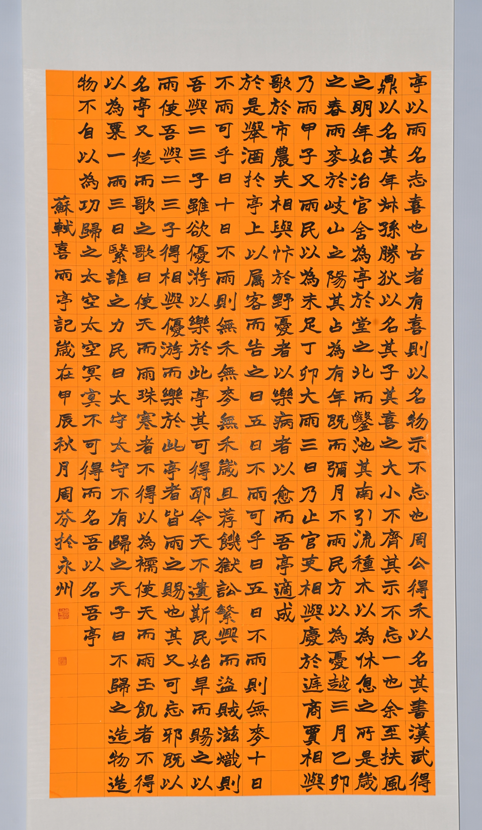 亭以雨名志喜也古者有喜則以名物示不忘也周公得禾以名其書漢武得
鼎以名其年叔孫勝狄以名其子其喜之大小不齊其示不忘一也余至扶風
之明年始治官舍為亭於堂之北而鑿池其南引流種木以為休息之所是歲
之春雨麥於岐山之陽其占為有年既而彌月不雨民方以為憂越三月乙卯
乃雨甲子又雨民以為未足丁卯大雨三日乃止官吏相與慶於庭商賈相與
歌於市農夫相與忭於野憂者以樂病者以愈而吾亭適成
於是舉酒於亭上以属客而告之曰五日不雨可乎曰五日不雨則無麥十日
不雨可乎曰十日不雨則無禾無麥無禾歲且荐饑獄訟繁興而盜賊滋熾則
吾與二三子雖欲優游以樂於此亭其可得耶今天不遺斯民始旱而賜之以
雨使吾與二三子得相與優游而樂於此亭者皆雨之賜也其又可忘邪既以
名亭又從而歌之歌曰使天而雨珠寒者不得以為襦使天而雨玉飢者不得
以為粟一雨三日繄誰之力民曰太守太守不有歸之天子曰不歸之造物造
物不自以為功歸之太空太空冥冥不可得而名吾以名吾亭
蘇軾喜雨亭記歲在甲辰秋月周芬於永州